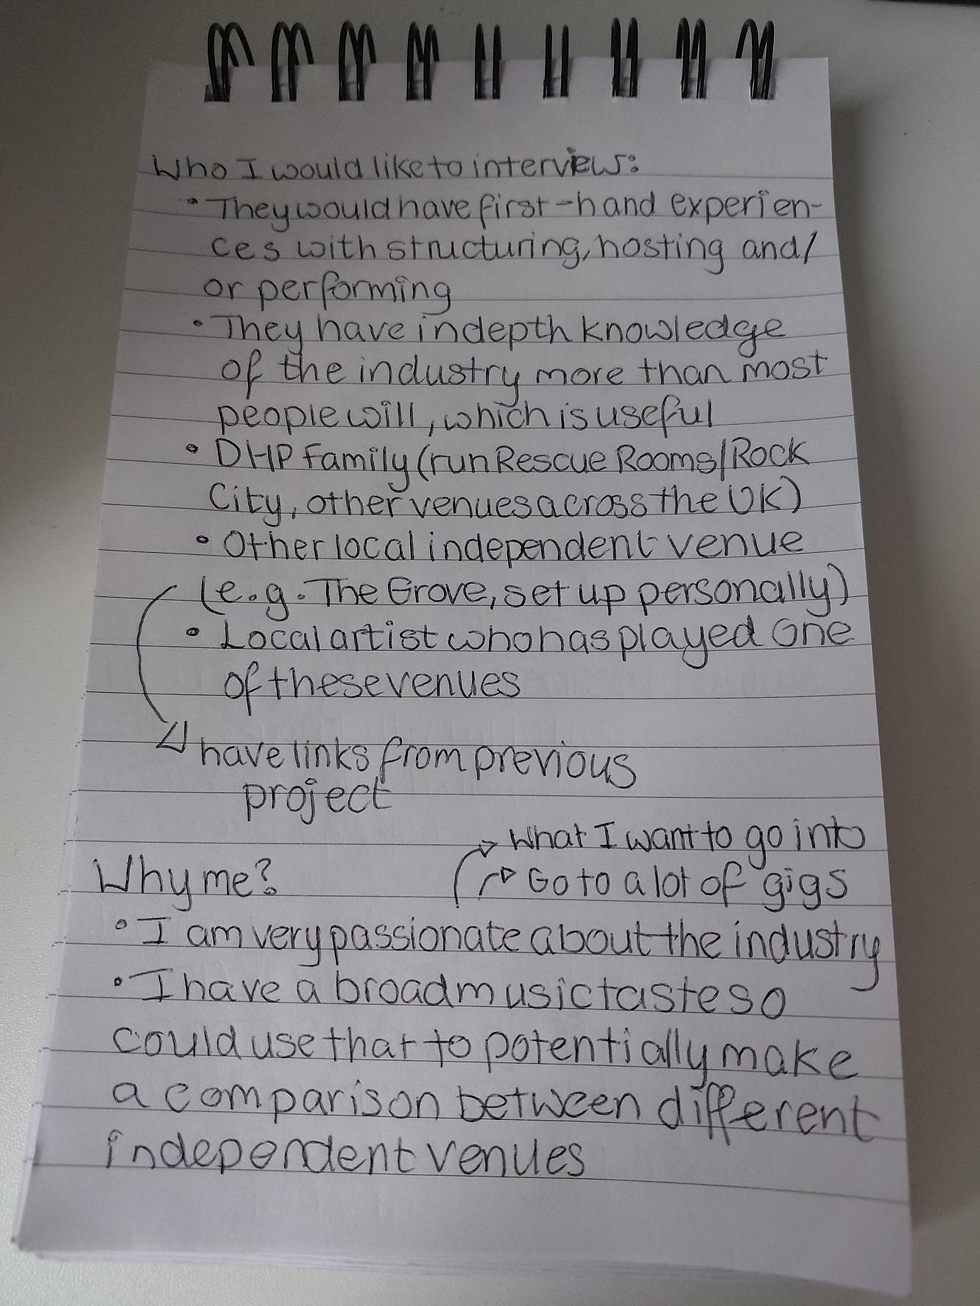 Who I would like to interview:
• They would have first-hand experien-
ces with structuring, hosting and/
or performing
• They have indepth knowledge
of the industry more than most
people will, which is useful
• DHP Family (run Rescue Rooms/Rock
City, other venues across the UK)
• Other local independent venue
(e.g. The Grove, set up personally)
• Local artist who has played one
of these venues
have links from previous
project
What I want to go into
Why me?
Go to a lot of gigs
• I am very passionate about the industry
• I have a broad music taste so
could use that to potentially make
a comparison between different
independent venues